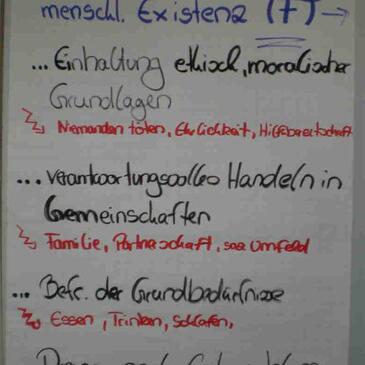 menschl. Existenz (7) →
... Einhaltung ethisch, moralischer
Grundlagen
Niemanden töten, Ehrlichkeit, Hilfsbereitschaft
... verantwortungsvolles Handeln in
Gemeinschaften
Familie, Partnerschaft, soz Umfeld
... Befr. der Grundbedürfnisse
Essen, Trinken, Schlafen,